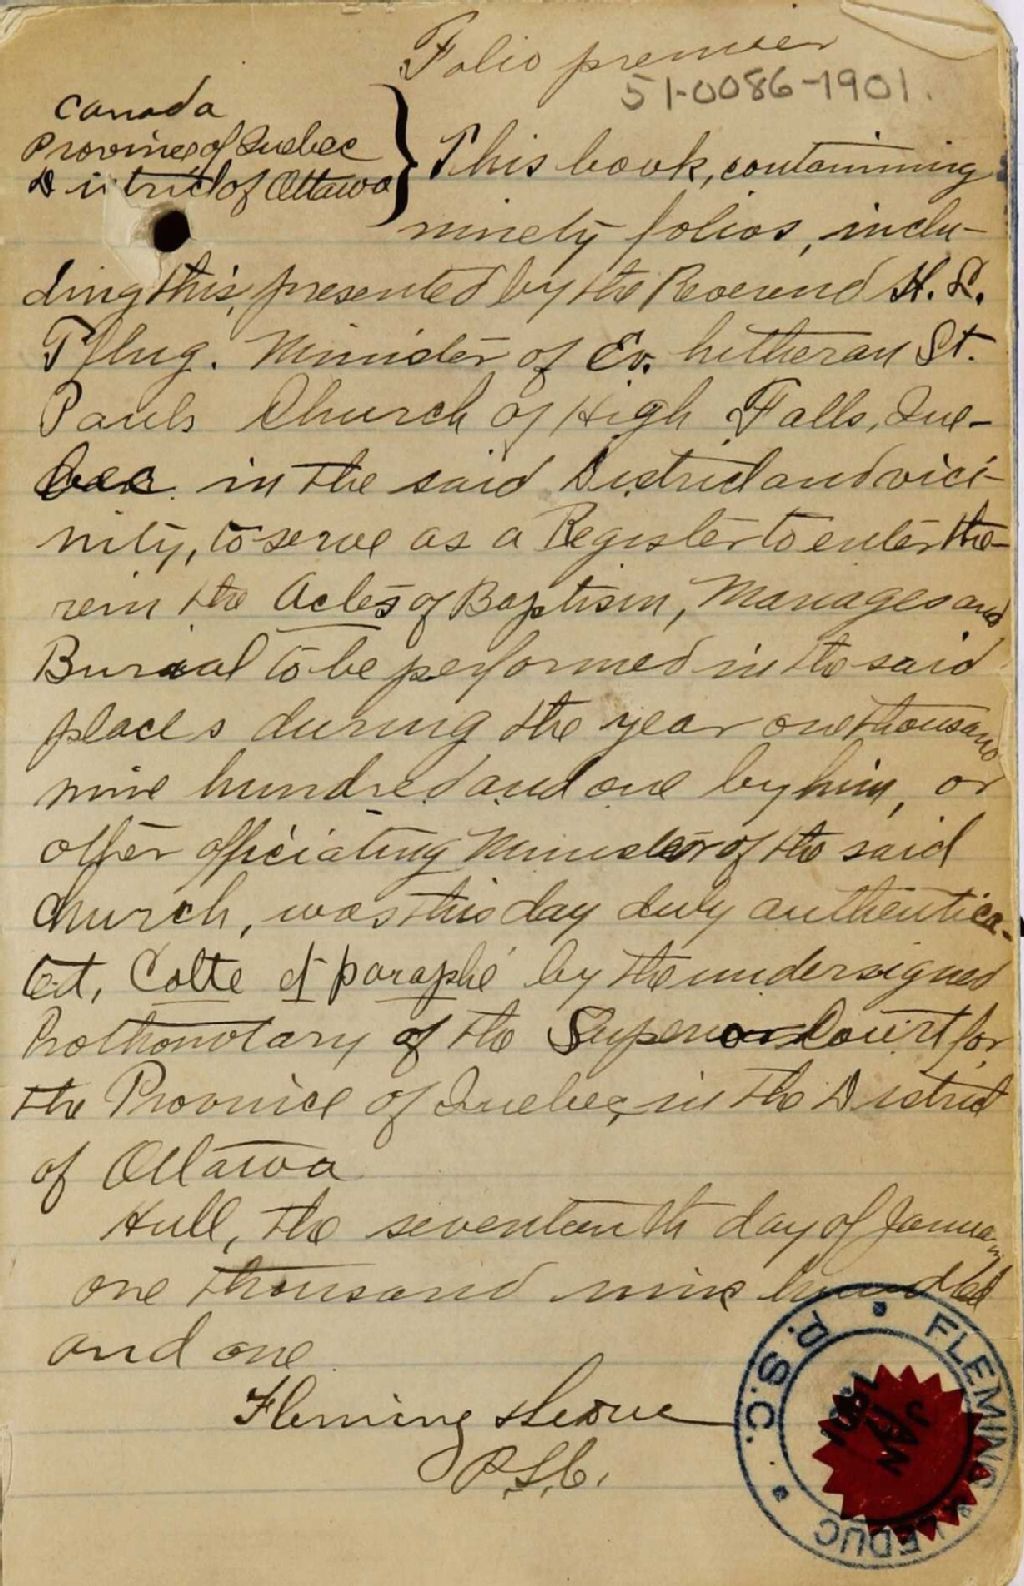 Folio premier
51-0086-1901.
Canada
Province of Quebec
District of Ottawa
This book, containing
ninety folios, inclu-
ding this, presented by the Reverend H. L.
Pflug. Minister of Ev. Lutheran St.
Pauls Church of High Falls, Que-
bec in the said District and vici-
nity, to serve as a Register to enter the-
rein the Actes of Baptism, Mariages and
Burial to be performed in the said
places during the year one thousand
nine hundred and one by him, or
other officiating Minister of the said
Church, was this day duly authentica-
ted, Cotté et paraphé by the undersigned
Prothonotary of the Superior Court for
the Province of Quebec, in the District
of Ottawa
Hull, the seventeenth day of January
one thousand nine hundred
and one
Fleming & Leduc
P.S.C.
FLEMING & LEDUC
P.S.C.
JAN
17
1901